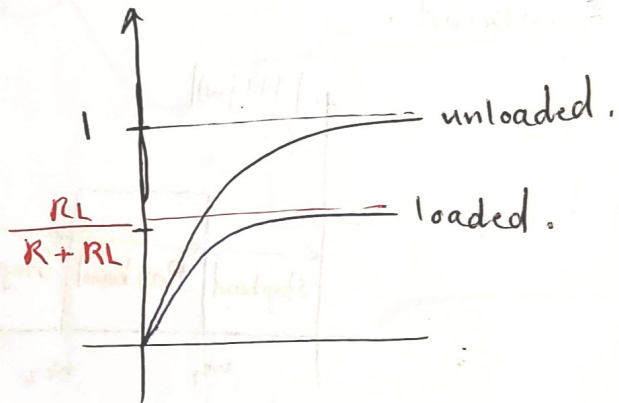 1
unloaded.
RL
R + RL
loaded.